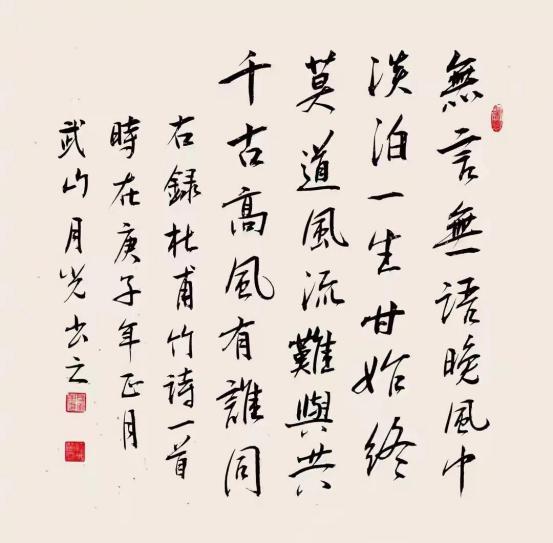 無言無語晚風中
淡泊一生甘始終
莫道風流難與共
千古高風有誰同
右録杜甫竹詩一首
時在庚子年正月
武山月光书之